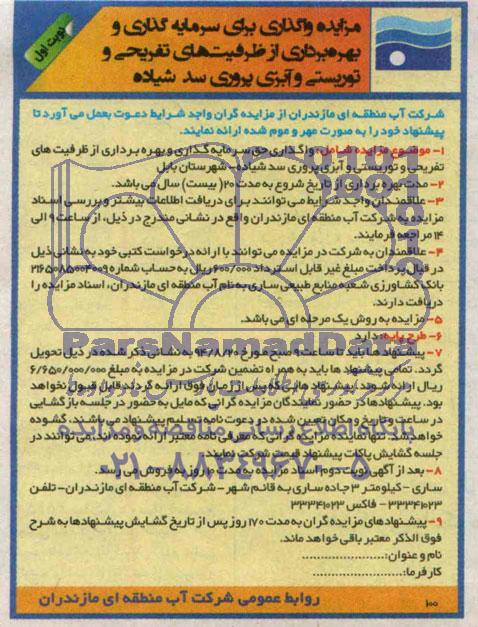 مزایده واگذاری برای سرمایه گذاری و
بهره‌برداری از ظرفیت‌های تفریحی و
توریستی و آبزی پروری سد شیاده
نوبت اول
شرکت آب منطقه ای مازندران از مزایده گران واجد شرایط دعوت بعمل می آورد تا
پیشنهاد خود را به صورت مهر و موم شده ارائه نمایند.
۱- موضوع مزایده شامل: واگذاری حق سرمایه گذاری و بهره برداری از ظرفیت های
تفریحی و توریستی و آبزی پروری سد شیاده - شهرستان بابل
۲- مدت بهره برداری از تاریخ شروع به مدت ۲۰( بیست) سال می باشد.
۳- علاقمندان واجد شرایط می توانند برای دریافت اطلاعات بیشتر و بررسی اسناد
مزایده به شرکت آب منطقه ای مازندران واقع در نشانی مندرج در ذیل، از ساعت ۹ الی
۱۴ مراجعه فرمایند.
۴- علاقمندان به شرکت در مزایده می توانند با ارائه درخواست کتبی خود به نشانی ذیل
در قبال پرداخت مبلغ غیر قابل استرداد ۶۰۰/۰۰۰ ریال به حساب شماره ۲۱۶۵۰۸۵۰۰۴۰۰۹
بانک کشاورزی شعبه منابع طبیعی ساری به نام آب منطقه ای مازندران، اسناد مزایده را
دریافت دارند.
۵- مزایده به روش یک مرحله ای می باشد.
۶- طرح پایه: دارد
۷- پیشنهادها باید تا ساعت ۹ صبح مورخ ۹۴/۸/۲۰ به نشانی ذکر شده در ذیل تحویل
گردد. تمامی پیشنهادها باید به همراه تضمین شرکت در مزایده به مبلغ ۶/۶۵۰/۰۰۰/۰۰۰
ریال ارائه شوند. پیشنهادهایی که پس از زمان فوق ارائه گردند قابل قبول نخواهد
بود. پیشنهادها در حضور نمایندگان مزایده گرانی که مایل به حضور در جلسه بازگشایی
در ساعت و تاریخ و مکان تعیین شده در دعوت نامه تسلیم پیشنهاد می باشند، گشوده
خواهد شد. تنها نماینده مزایده گرانی که معرفی نامه معتبر ارائه نموده اند، می توانند در
جلسه گشایش پاکات پیشنهاد قیمت شرکت نمایند.
۸- بعد از آگهی نوبت دوم، اسناد مزایده به مدت ۱۰ روز به فروش می رسد.
ساری - کیلومتر ۳ جاده ساری به قائم شهر - شرکت آب منطقه ای مازندران - تلفن
۳۳۳۴۱۰۲۳ - فاکس ۳۳۳۴۱۰۲۳
۹- پیشنهادهای مزایده گران به مدت ۱۷۰ روز پس از تاریخ گشایش پیشنهادها به شرح
فوق الذکر معتبر باقی خواهد ماند.
نام و عنوان: ........................
کارفرما: ...........................
روابط عمومی شرکت آب منطقه ای مازندران
۱۰۰
ParsNamadData
پایگاه اطلاع رسانی مناقصه و مزایده
۰۲۱-۸۸۳۴۹۶۷۰-۵